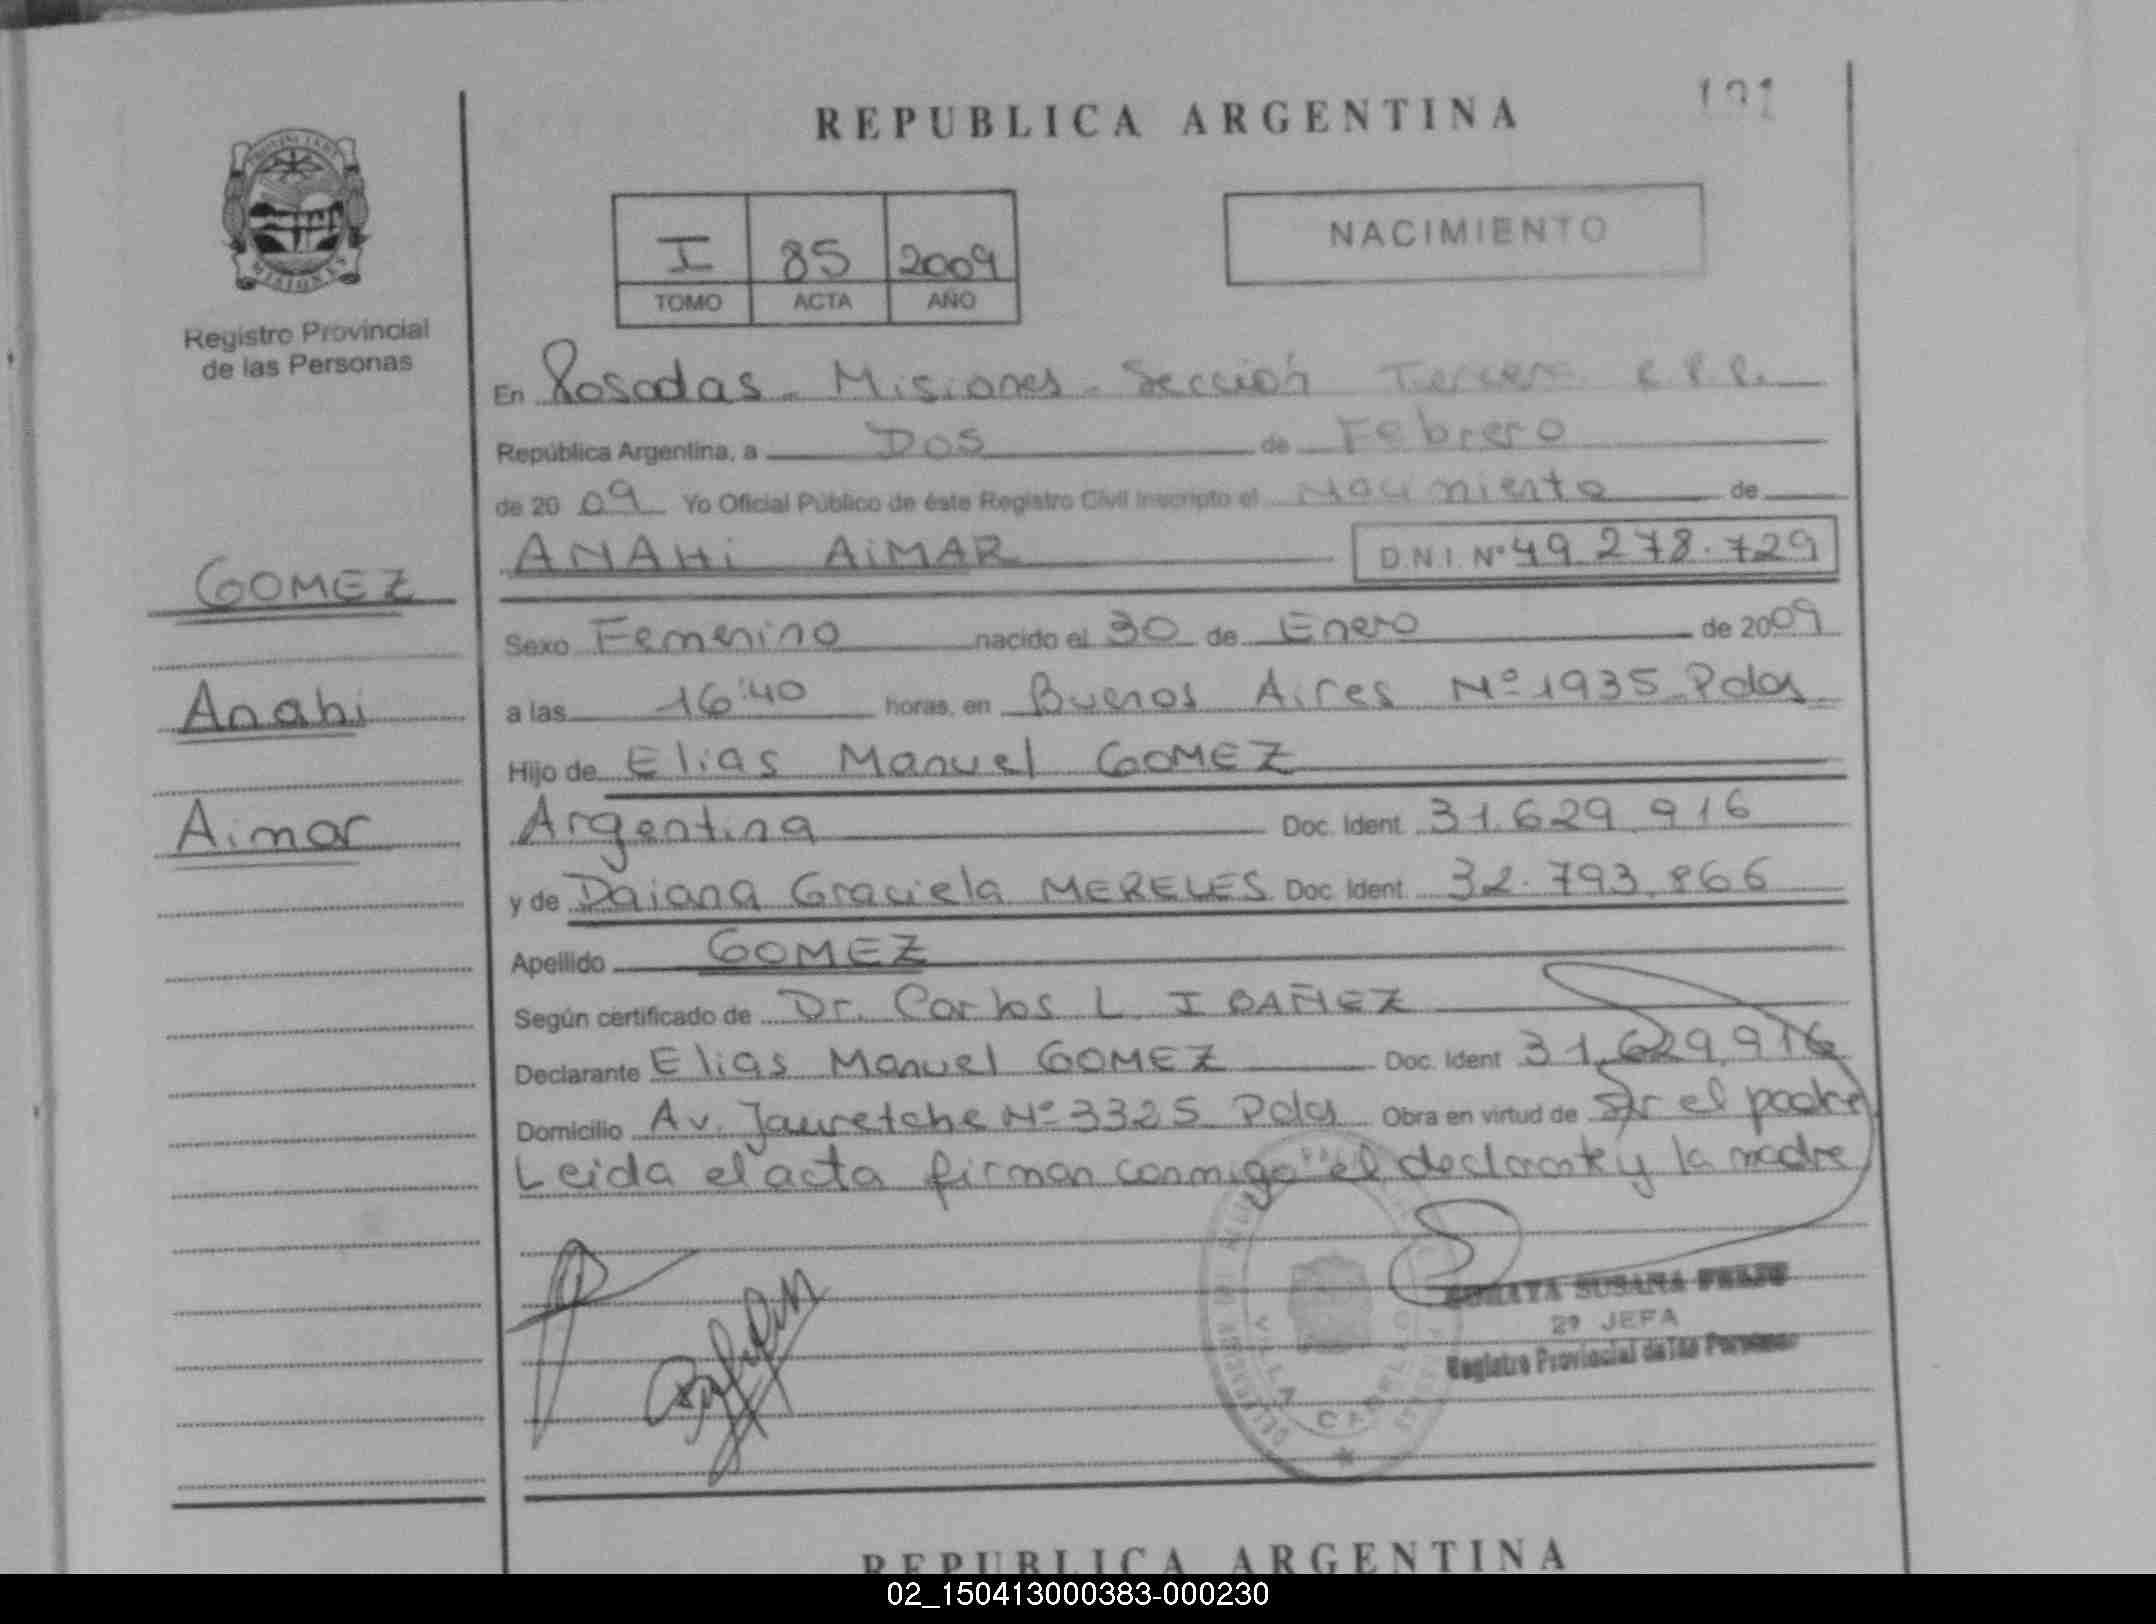 REPUBLICA ARGENTINA
I 85 2009
TOMO ACTA AÑO
NACIMIENTO
Registro Provincial
de las Personas
En Posadas - Misiones - Sección Tercera R.P.P.
República Argentina, a Dos de Febrero
de 2009 Yo Oficial Público de éste Registro Civil Inscripto el Nacimiento de
ANAHi AiMAR D.N.I. Nº 49.278.729
GOMEZ
Anahi
Aimar
Sexo Femenino nacido el 30 de Enero de 2009
a las 16:40 horas, en Buenos Aires Nº 1935 Pdas
Hijo de Elias Manuel GOMEZ
Argentina Doc. Ident 31.629.916
y de Daiana Graciela MERELES Doc. Ident. 32.793.866
Apellido GOMEZ
Según certificado de Dr. Carlos L. IBAÑEZ
Declarante Elias Manuel GOMEZ Doc. Ident 31.629.916
Domicilio Av. Jauretche Nº 3325 Pdas Obra en virtud de Ser el padre
Leida el acta firman conmigo el declarante y la madre
SUSANA
2º JEFA
Registro Provincial de las Personas
VILLA CABELLO
REPUBLICA ARGENTINA
02_150413000383-000230